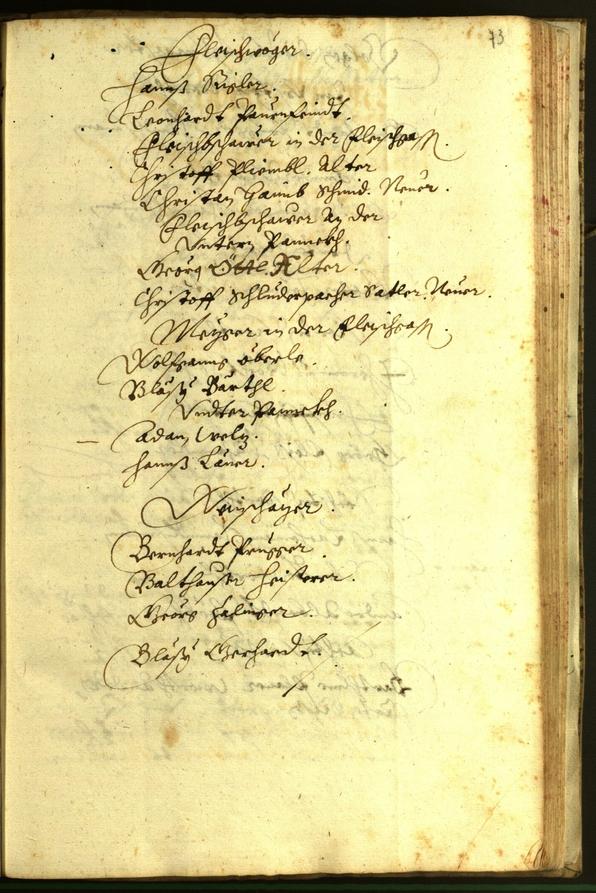 73
Fleischwöger.
Hannß Rigler.
Leonhardt Paurnfeindt.
Fleischbschawer in der Fleischgass.
Christoff Pliembl. Alter
Christan Gaimb Schmid. Neuer.
Fleischbschawer An der
Vntern Pannckh.
Georg Öttl Alter.
Christoff Schluderpacher Satler. Neuer.
Mezger in der Fleischgass.
Wolfgang Eberle.
Bläsy Barthl.
Vndter Pannckh.
Adam Welz.
Hannß Laner.
Weinschäzer.
Bernhardt Prugger.
Balthauser Heissrer.
Georg Halinger.
Bläsy Gerhardt.